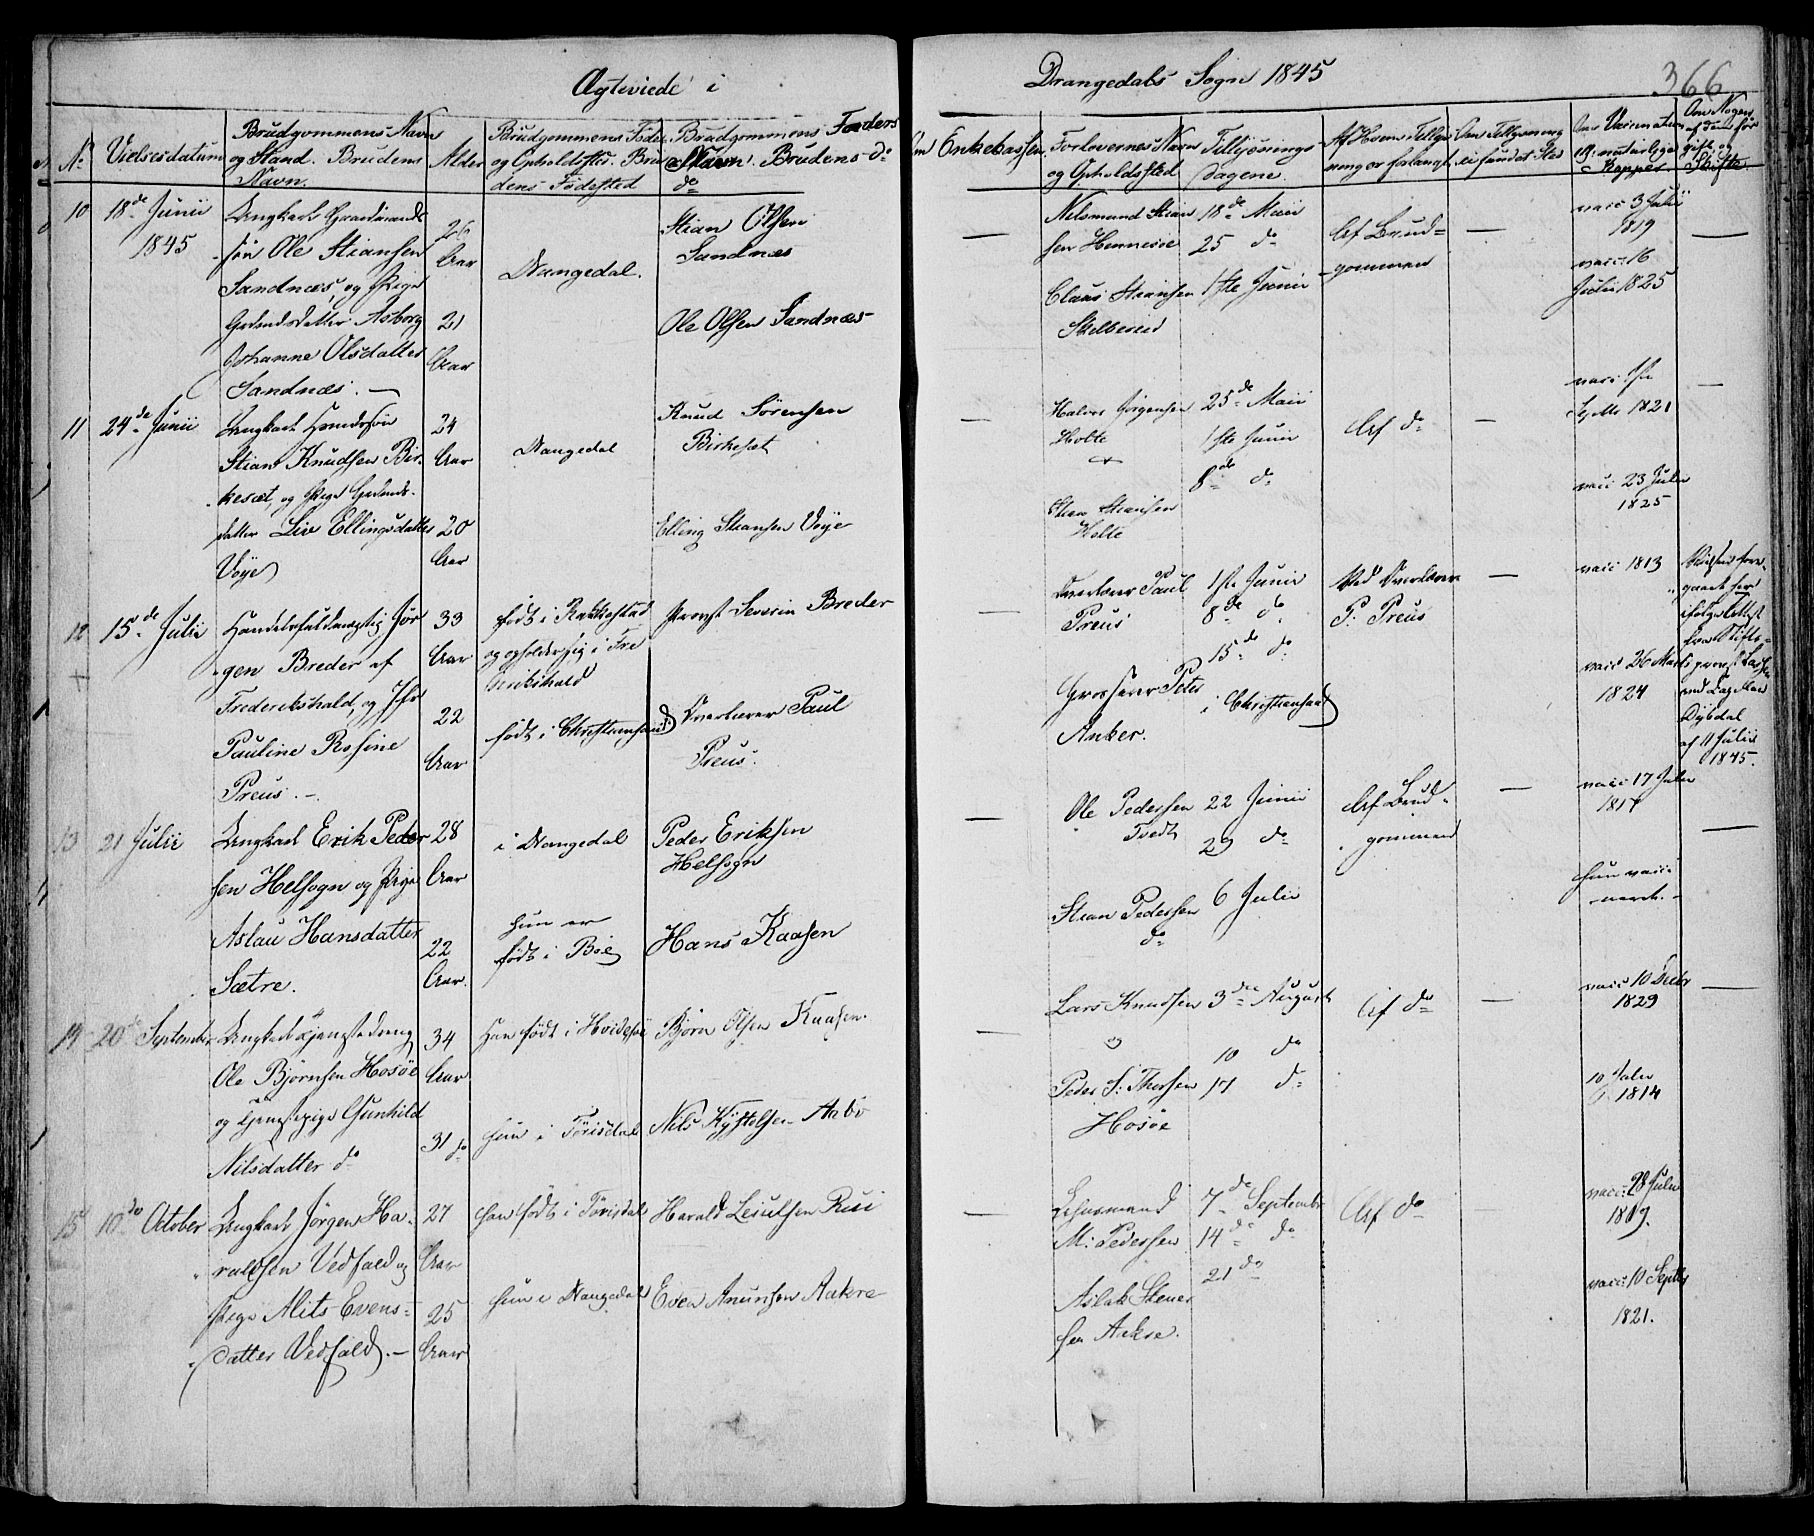 Ægteviede i
Drangedals Sogn 1845
366
No
Vielsesdatum
Brudgommens Navn
og Stand. Brudens
Navn.
Alder
Brudgommens Føde
og Opholdssted. Bru
dens Fødested
Brudgommens Faders
Navn. Brudens do
do
Om Enkekassen
Forlovernes Navn
og Opholdssted
Tillysnings
dagene.
Af Hvem Tillys
ning er forlangt
Om Tillysning
ei fundet Sted
Om Vaccination
naturlige
Kopper.
Om Nogen
af Dem før
gift, og
Skifte
10
18de Junii
1845
Ungkarl Gaardmands
søn Ole Stiansen
Sandnæs, og Pige
Gaardmdatter Asborg
Johanne Olsdatter
Sandnæs. —
26
Aar
21
Aar
Drangedal.
Stian Olsen
Sandnæs
Ole Olsen Sandnæs
—
Nilsmund Stian
sen Henneseie
Claus Stiansen
18de Maii
25 do
1ste Junii
Af Brud-
gommen
—
vacc 3 Julii
1819
vacc. 16
Julii 1825
—
11
24de Junii
Ungkarl
Stian Knudsen Bir-
kesæt, og Pige
datter Liv Ellingsdatter
Voje
24
Aar
20
Aar
Drangedal
Knud Sørensen
Birkesæt
Elling Stiansen Voje
—
Halvor Jørgensen
Holte
Stian Stiansen
Holte
25de Maii
1ste Junii
8de do
Af do
—
vacc. 1ste
Septb 1821
vacc 23 Julii
1825
—
12
15de Julii
Handelsfuldmægtig Jør
gen Breder af
Frederikshald, og Jfr
Pauline Rosine
Preus. —
33
Aar
22
Aar
født i Rakkestad
og opholder sig i Fre
derikshald
født i Christiansand
Provst Severin Breder
Overlærer Paul
Preus.
—
Overlærer Paul
Preus
Grosserer Peter
Anker.
1ste Junii
8de do
15de do
i Christiansand
Ved Overlærer
P. Preus
—
vacc 1813
vacc 26 Marts
1824
Vielsen fore-
gaaet her
ifølge Attest
fra Stifts-
provst
Dybdal
af 11 Julii
1845.
13
21 Julii
Ungkarl Erik Peder
sen Helsogn og Pige
Aslau Hansdatter
Sætre.
28
Aar
22
Aar.
i Drangedal
hun er
født i Bøe
Peder Eriksen
Helsogn
Hans Kaasen
—
Ole Pedersen
Tvedt
Stian Pedersen
do
22 Junii
29 do
6 Julii
Af Brud-
gommen
—
vacc 17 Julii
hun vacc.
—
14
20de September
Ungkarl Tjenestedreng
Ole Bjørnsen Hosøe
og Tjenestepige Gunhild
Nilsdatter do
34
Aar
31 do
Han født i Hvideseie
hun i Tørisdal
Bjørn Olsen Kaasen.
Nils Kjstolsen Aabø
—
Lars Knudsen
og
Peder S. Thorsen
Hosøe
3die August
10 do
17 do
Af do
—
vacc 10 Decbr
1829
10 Julii
1814
—
15
10de October
Ungkarl Jørgen Ha-
raldsen Vedfald og
Pige Alits Evens-
datter Vedfald. —
27
Aar
25
Aar
han født i Tørisdal
hun i Drangedal
Harald Leiulsen Rusi
Even Anunsen Aakre
—
M. Pedersen
Aslak Stener
sen Aakre.
7de September
14de do
21 do
Af do
vacc. 28 Julii
1819.
vacc. 10 Septbr
1821.